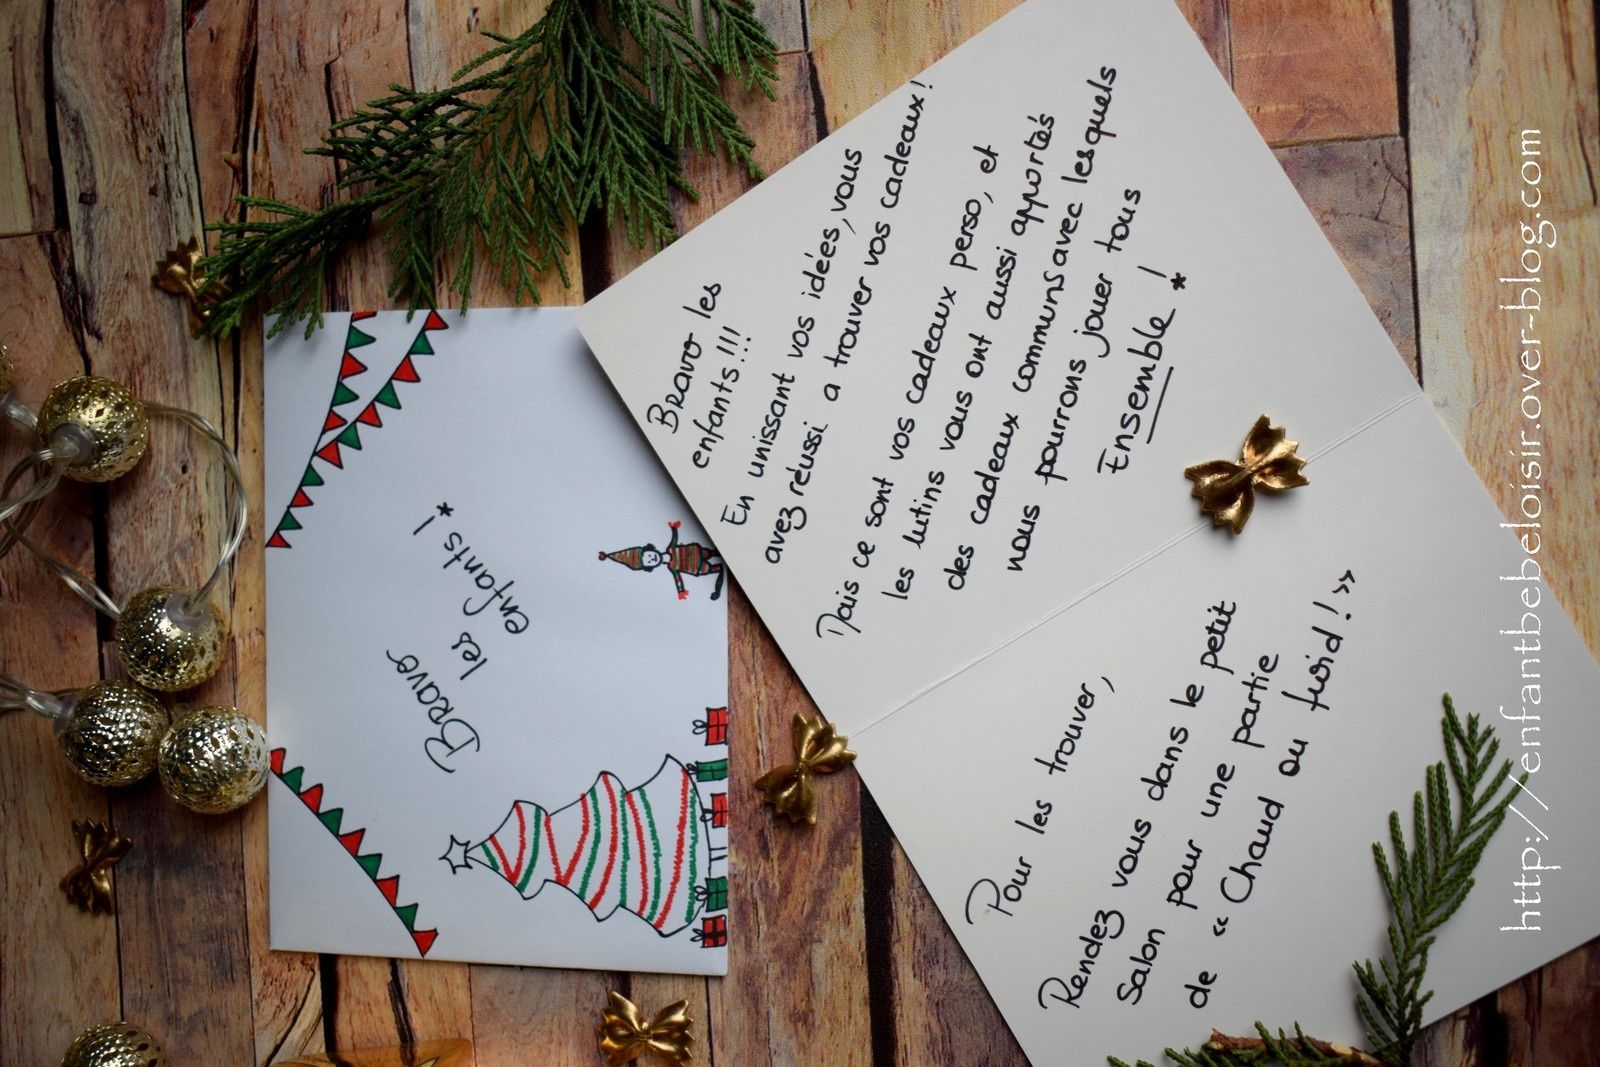 Bravo
les
enfants !*
Bravo les
enfants !!!
En unissant vos idées, vous
avez réussi a trouver vos cadeaux !
Mais ce sont vos cadeaux perso, et
les lutins vous ont aussi apportés
des cadeaux communs avec lesquels
nous pourrons jouer tous
Ensemble ! *
Pour les trouver,
Rendez vous dans le petit
Salon pour une partie
de « Chaud ou froid ! »
http://enfantbebeloisir.over-blog.com